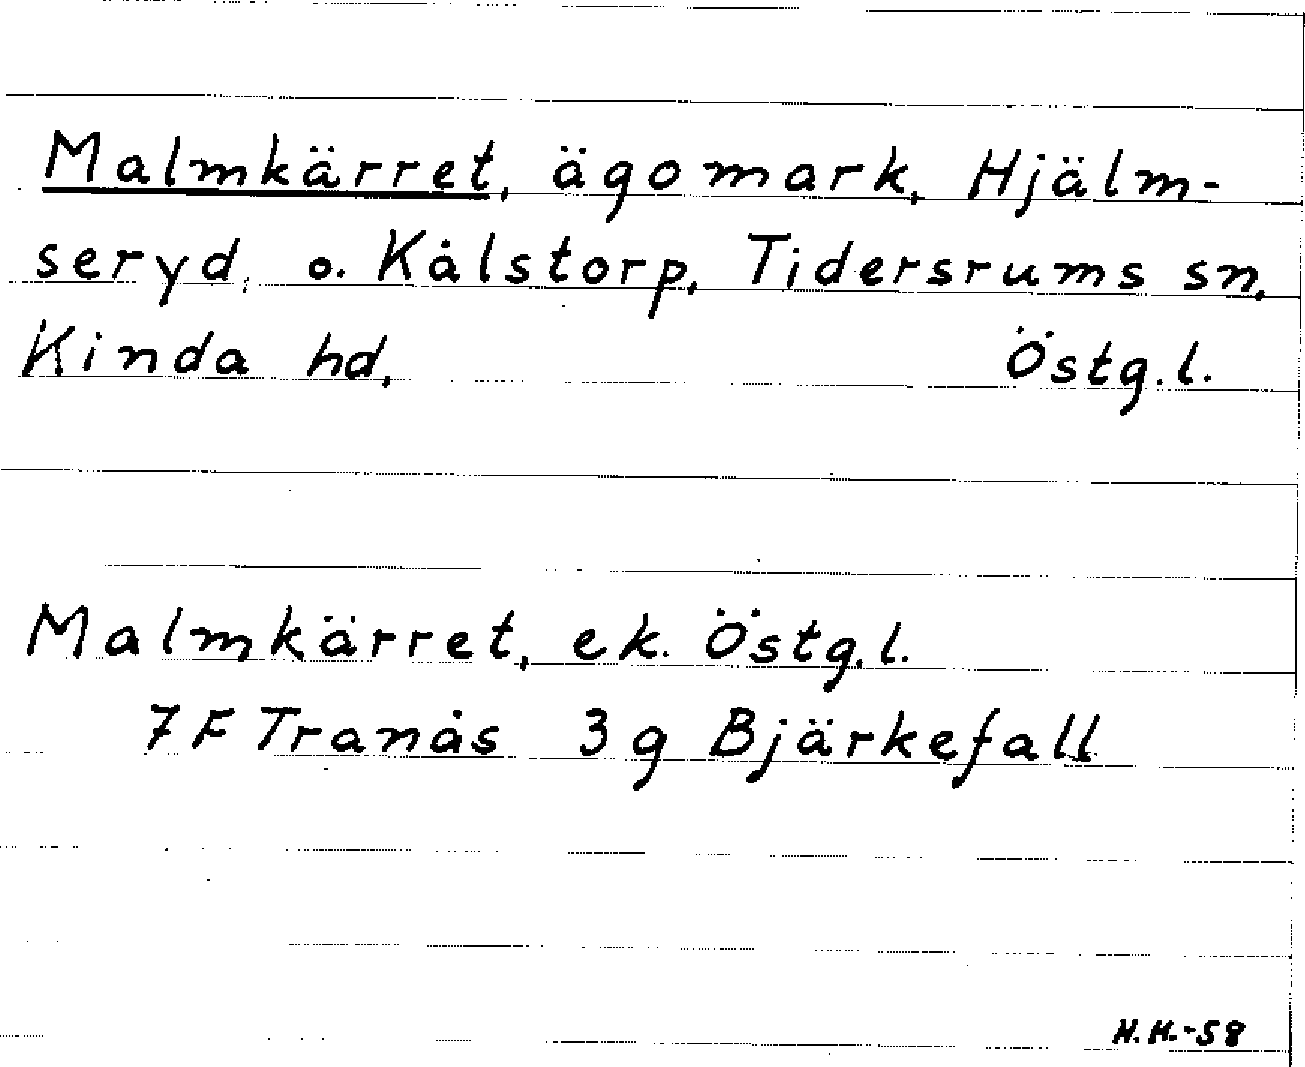 Malmkärret, ägomark, Hjälm-
seryd, o. Kålstorp, Tidersrums sn,
Kinda hd, Östg.l.
Malmkärret, ek. Östg.l.
7F Tranås 3g Bjärkefall
H.H.-58